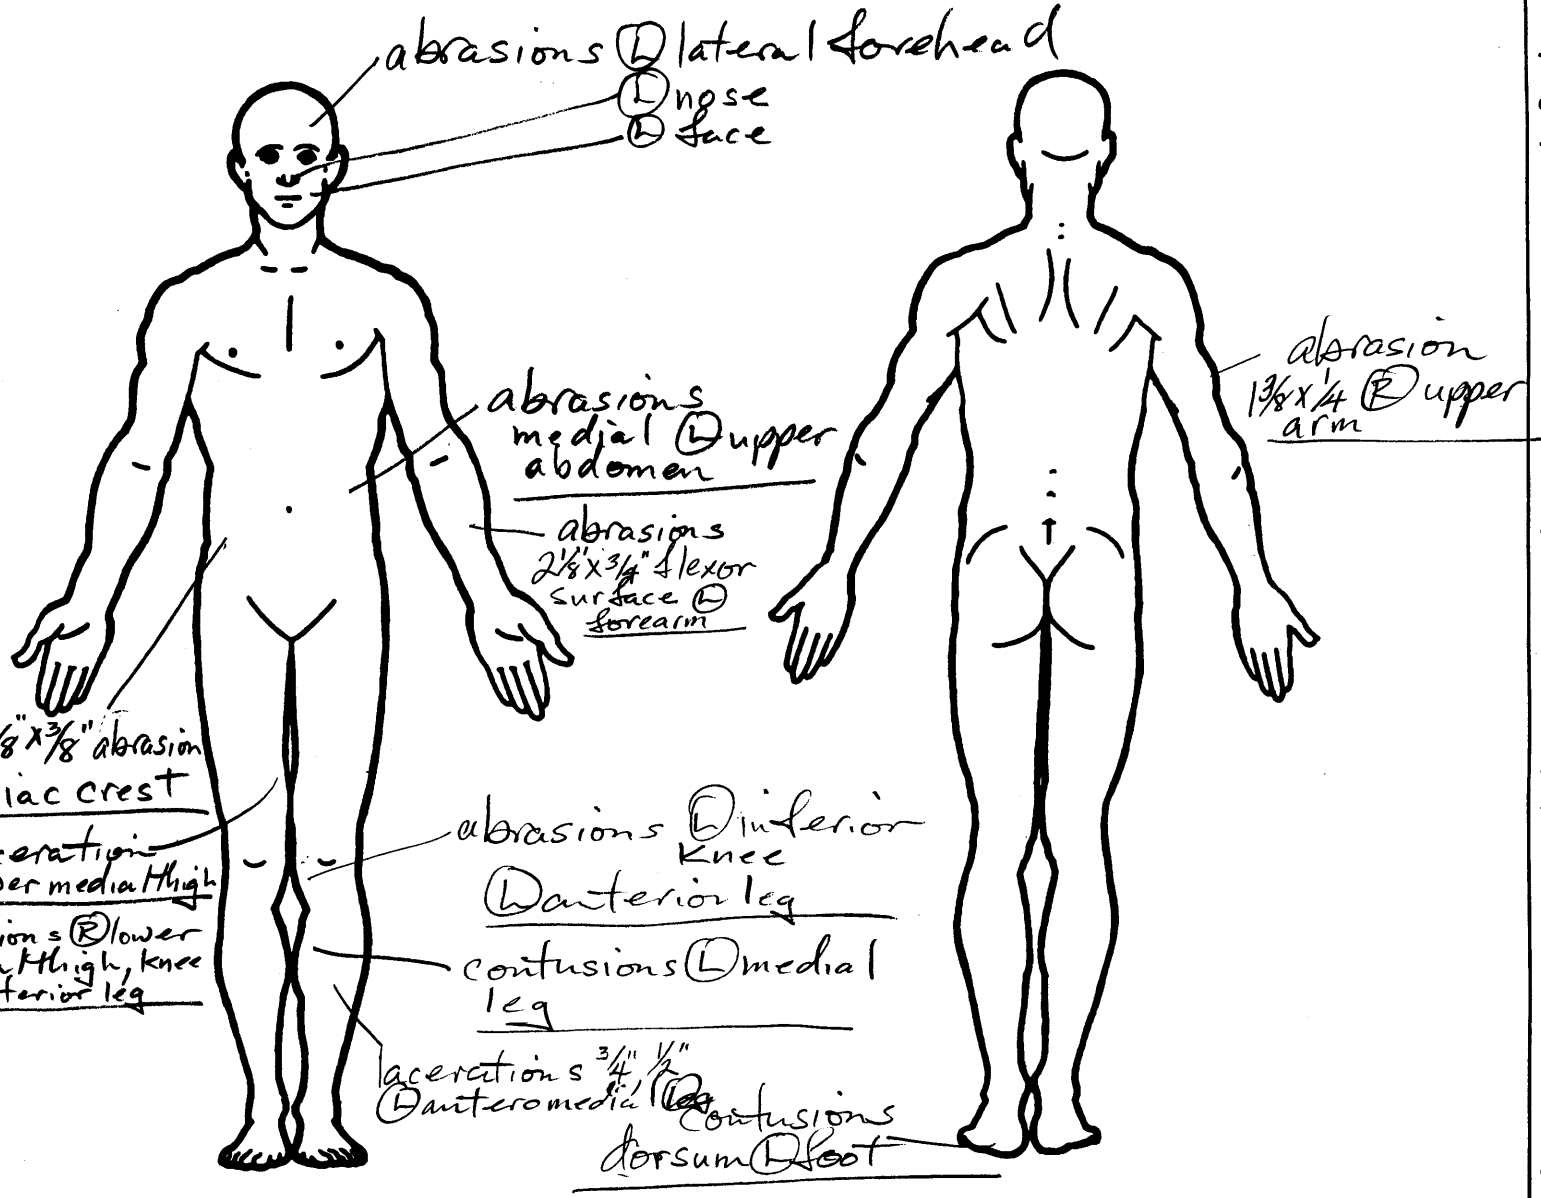 abrasions Ⓛ lateral forehead
Ⓛ nose
Ⓛ face
abrasion
1 3/8 x 1/4 Ⓡ upper
arm
abrasions
medial Ⓛ upper
abdomen
abrasions
2 1/8" x 3/4" flexor
surface Ⓛ
forearm
/8" x 3/8" abrasion
iac crest
eration
per medial thigh
ions Ⓡ lower
l thigh, knee
terior leg
abrasions Ⓛ inferior
knee
Ⓛ anterior leg
contusions Ⓛ medial
leg
lacerations 3/4" 1/2"
Ⓛ anteromedial leg
contusions
dorsum Ⓛ foot